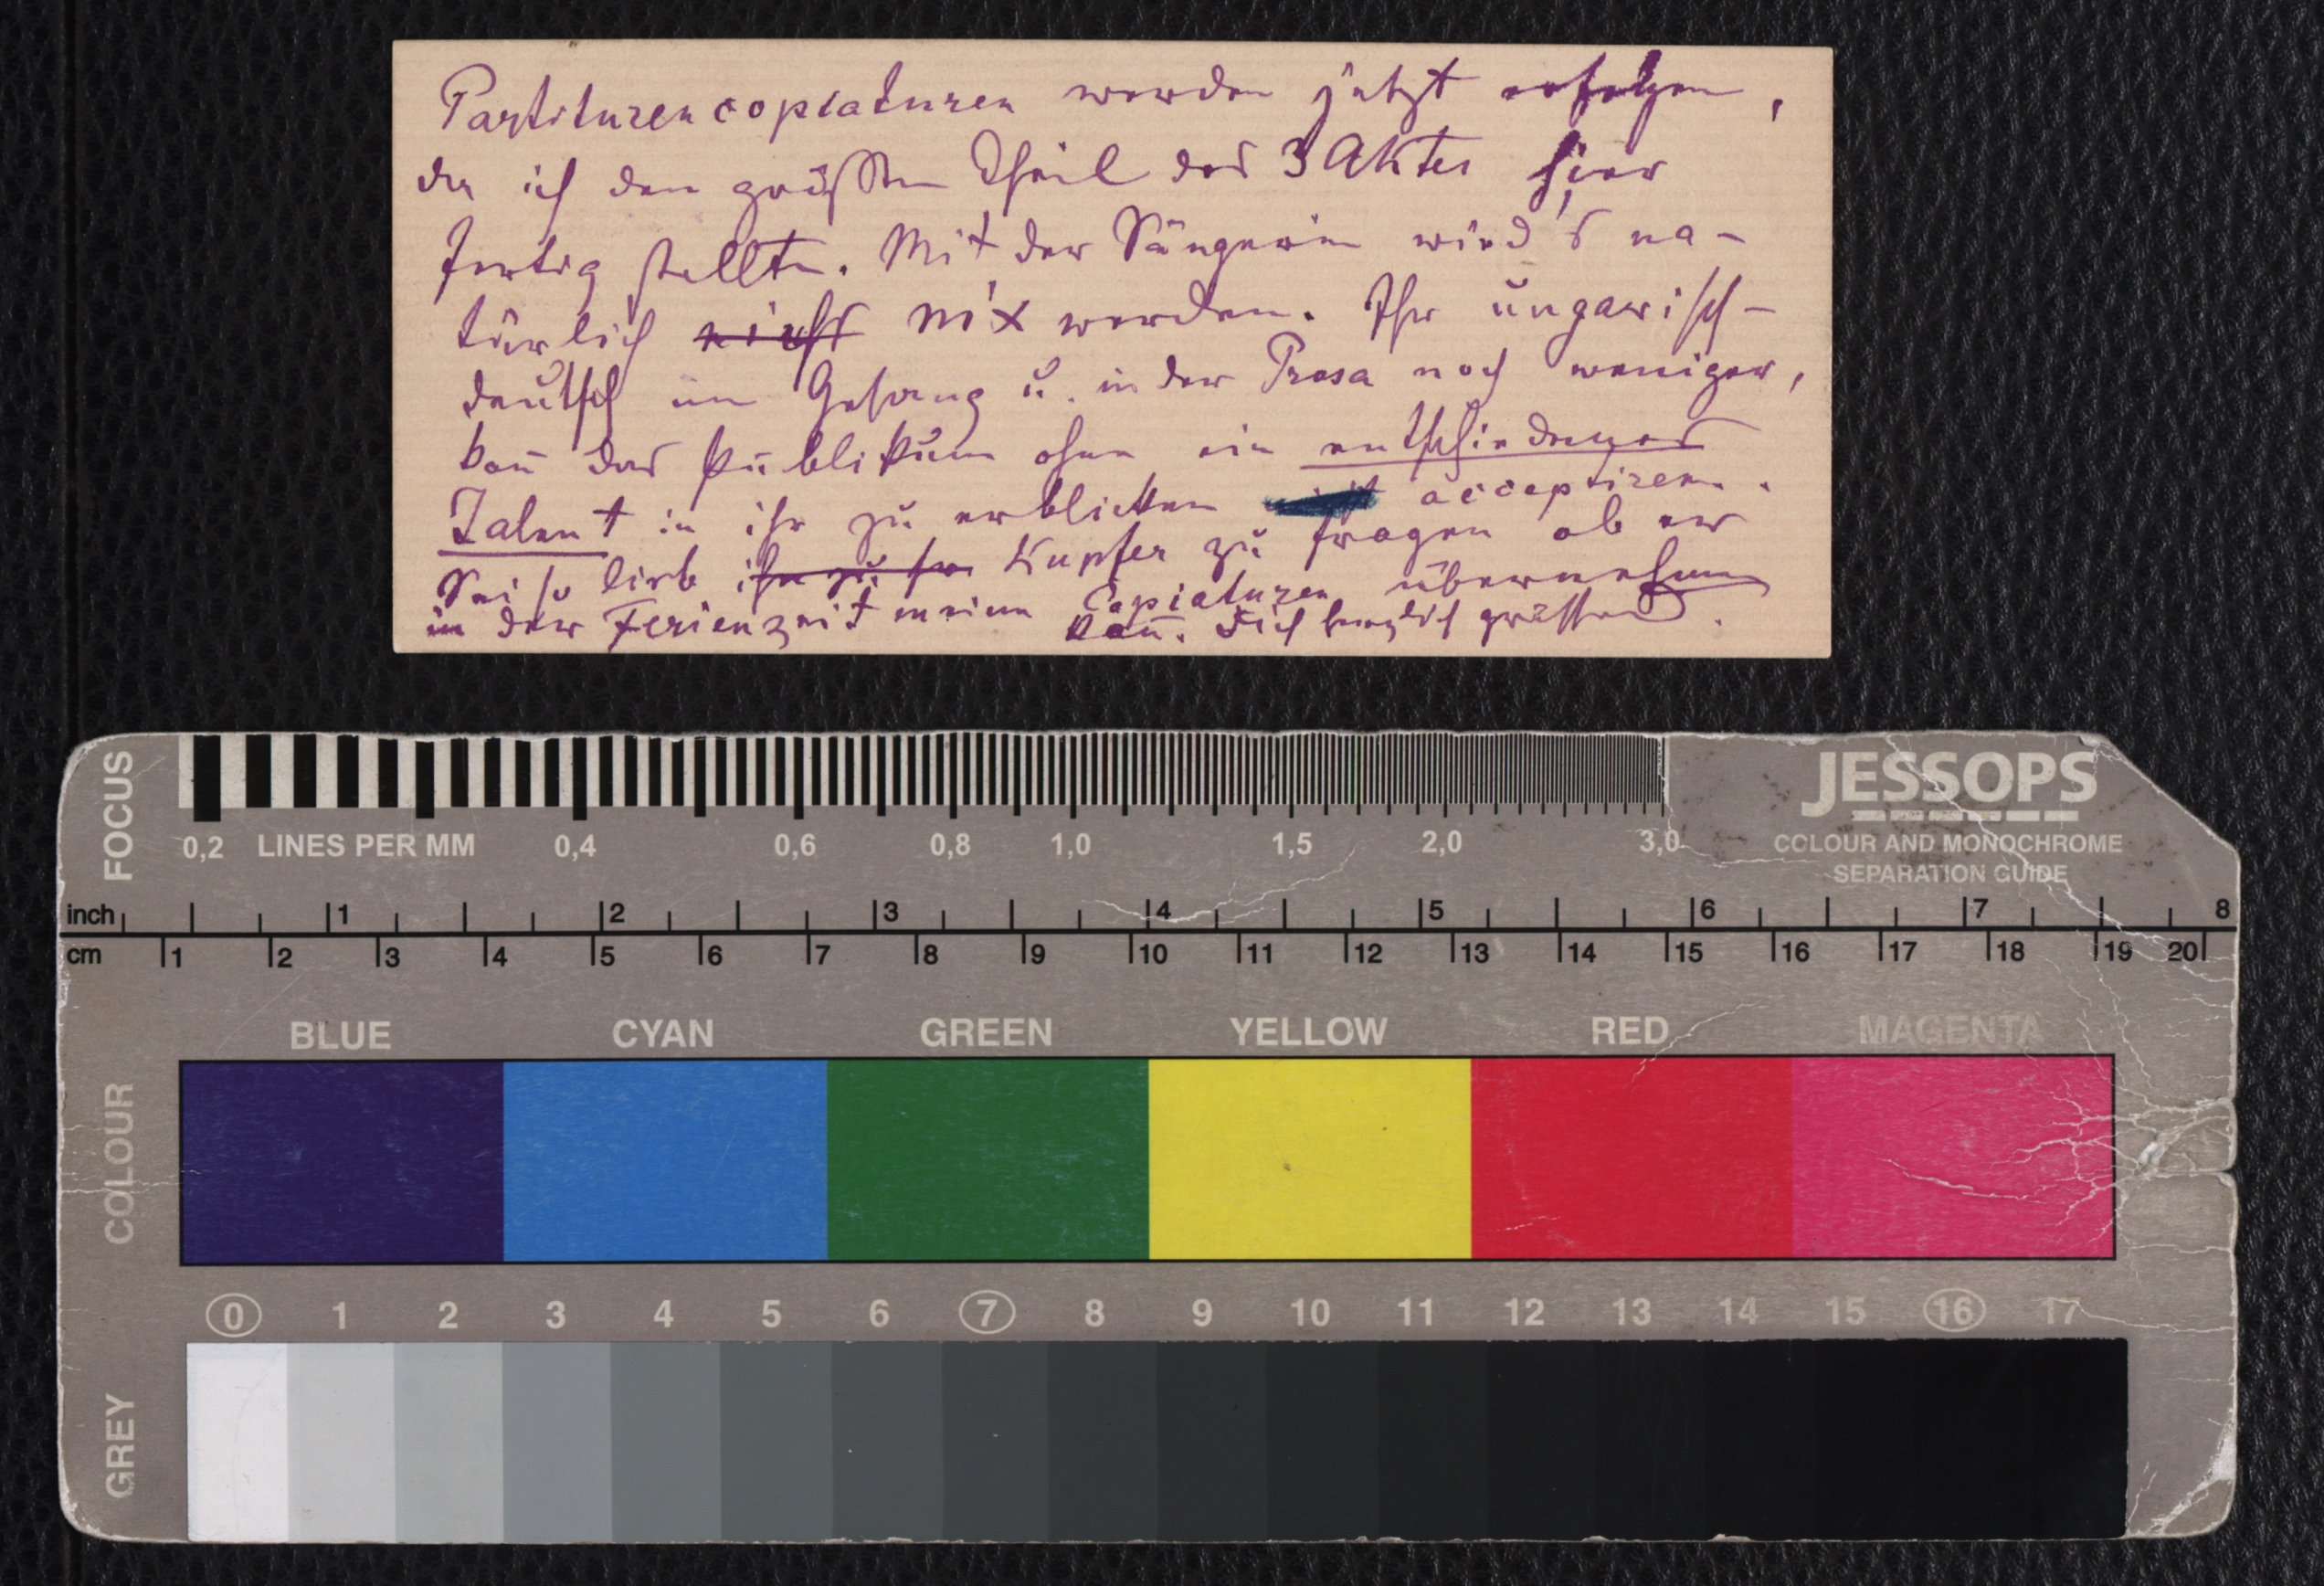 Partiturencopiaturen werden jetzt erfolgen,
da ich den größten Theil des 3 Aktes hier
fertig stellte. Mit der Sängerin wird's na-
türlich nichts nix werden. Ihr ungarisch-
deutsch im Gesang u. in der Prosa noch weniger,
kañ das Publikum ohne ein entschiedenes
Talent in ihr zu erblicken acceptiren.
Sei so lieb ihn zu fra Kupfer zu fragen ob er
in der Ferienzeit meine Copiaturen übernehmen
kañ. Dich herzlich grüssend.
FOCUS
0,2 LINES PER MM 0,4 0,6 0,8 1,0 1,5 2,0 3,0
JESSOPS
COLOUR AND MONOCHROME
SEPARATION GUIDE
inch 1 2 3 4 5 6 7 8
cm 1 2 3 4 5 6 7 8 9 10 11 12 13 14 15 16 17 18 19 20
COLOUR
BLUE CYAN GREEN YELLOW RED MAGENTA
0 1 2 3 4 5 6 7 8 9 10 11 12 13 14 15 16 17
GREY